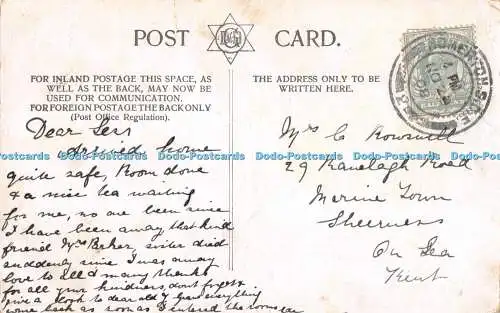 POST CARD.
FOR INLAND POSTAGE THIS SPACE, AS
WELL AS THE BACK, MAY NOW BE
USED FOR COMMUNICATION.
FOR FOREIGN POSTAGE THE BACK ONLY
(Post Office Regulation).
THE ADDRESS ONLY TO BE
WRITTEN HERE.
Dear Less
Arrived home
quite safe, Room done
& a nice tea waiting
for me, no one been since
I have been away that kind
friend Mrs Baker, sister died
suddenly since I was away
love to all & many thanks
for all your kindness, dont forget
give a to dear old everything
back as soon as I entered the room
Mrs C
29 Ranelagh Road
Marine Town
Sheerness
On Sea
Kent
Dodo-Postcards Dodo-Postcards Dodo-Postcards Dodo-Postcards